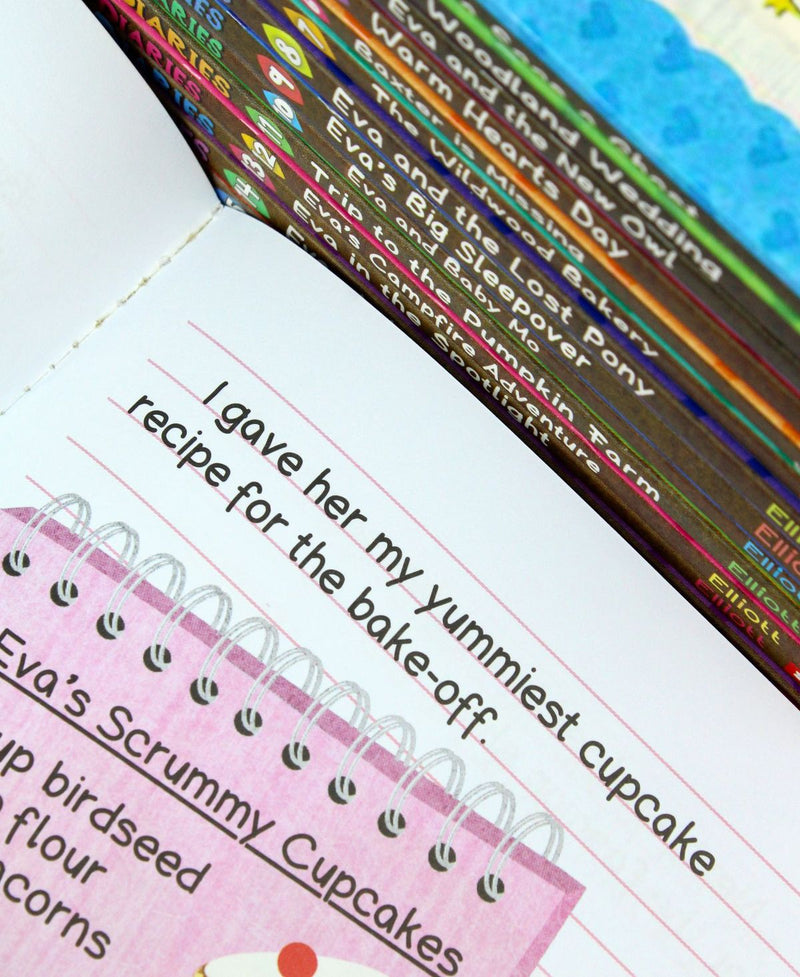 DIARIES
DIARIES
DIARIES
8
9
11
12
13
14
Sees a Ghost
Woodland Wedding
Eva and the New Owl
Warm Hearts Day
Baxter is Missing
The Wildwood Bakery
Eva and the Lost Pony
Eva's Big Sleepover
Eva and Baby Mo
Trip to the Pumpkin Farm
Eva's Campfire Adventure
Eva in the Spotlight
Elliott
Elliott
Elliott
Elliott
I gave her my yummiest cupcake
recipe for the bake-off.
Eva's Scrummy Cupcakes
up birdseed
flour
acorns